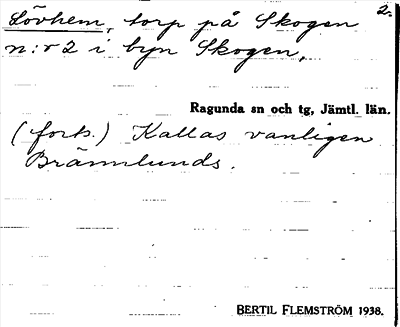 2.
Lövhem, torp på Skogen
n:r 2 i byn Skogen,
Ragunda sn och tg, Jämtl. län.
(forts.) Kallas vanligen
Brännlunds.
BERTIL FLEMSTRÖM 1938.